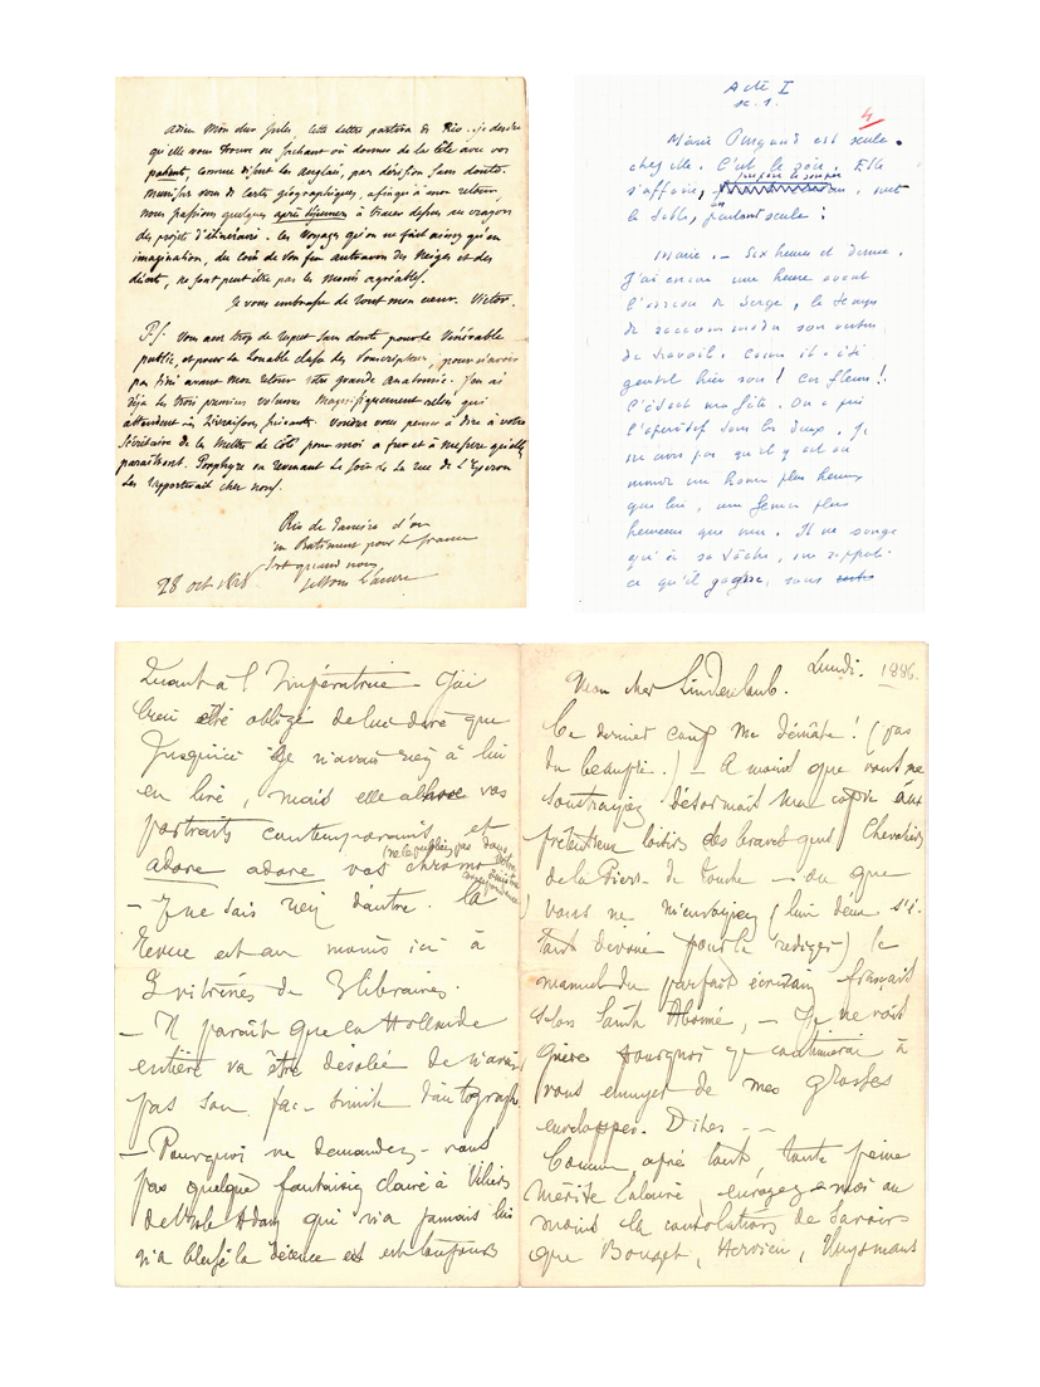 Adieu Mon cher Jules, cette lettre partira de Rio.. je desire
qu'elle vous trouve ne sachant où donner de la tête avec vos
patient, comme disent les anglais, par dérision sans doute.
Munissez vous de Cartes géographiques, afin qu'à mon retour
nous passions quelques après déjeuners à tracer dessus au crayon
des projets d'itinéraire. Les Voyages qu'on ne fait ainsi qu'en
imagination, du coin de son feu au travers des Neiges et des
déserts, ne sont peut être pas les moins agréables.
Je vous embrasse de tout mon cœur. Victor.
P.S. Vous avez trop de respect sans doute pour le Vénérable
public, et pour la Louable classe des Souscripteurs, pour n'avoir
pas fini avant mon retour votre grande anatomie. J'en ai
déja les trois premiers volumes Magnifiquement reliés qui
attendent les Livraisons suivantes. Voudrez vous penser à dire à votre
Sécrétaire de les Mettre de Côté pour moi a fur et à mesure qu'elles
paraitront. Porphyre en revenant le soir de la rue de l'
les rapporterait chez nous.
Rio de Janeiro d'où
un Batiment pour la france
sort quand nous
jettons l'ancre
28 oct 1828
Acte I
sc. 1.
4
Marie est seule
chez elle. C'est le soir. Elle
prépare le souper
s'affaire, met
la table, en parlant seule :
Marie. — Six heures et demie.
J'ai encore une heure avant
l'arrivée de Serge, le temps
de raccommoder son veston
de travail. Comme il a été
gentil hier soir ! Ces fleurs !
C'était ma fête. On a pris
l'apéritif tous les deux. Je
ne crois pas qu'il y ait au
monde un homme plus heureux
que lui, une femme plus
heureuse que moi. Il ne songe
qu'à sa tâche, me rapporte
ce qu'il gagne, sans
Quant à l'Impératrice j'ai
bien été obligé de lui dire que
Jusqu'ici Je n'avais rien à lui
en lire, mais elle abhore vos
portraits contemporains et
(ne le publiez pas dans votre
correspondance
adore adore vos chromo
— Je ne sais rien d'autre. La
Revue est au moins ici à
3 vitrines de 3 libraires.
— Il parait que la Hollande
entière va être désolée de n'avoir
pas son fac-simile d'autographe
— Pourquoi ne demandez-vous
pas quelque fantaisie claire à Villiers
de l'Isle Adam qui n'a jamais lui
n'a blessé la décence et est toujours
Lundi. 1886.
Mon cher Lindenlaub.
Ce dernier coup me démâte ! (pas
du beaupré.) — A moins que vous ne
soustrayiez désormais ma copie aux
prétentieux loisirs des braves gens Chevaliers
de la Pierre de touche — ou que
vous ne m'envoyiez (l'un deux s'é-
tant dévoué pour le rediger) le
manuel du parfait écrivain français
selon Sainte Abonné, — Je ne vois
guère pourquoi je continuerai à
vous ennuyer de mes grosses
enveloppes. Dites - -
Comme, après tout, toute peine
mérite salaire, envoyez-moi au
moins la consolation de savoir
que Bourget, Hervieu, Huysmans